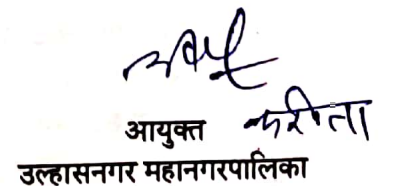 आयुक्त करीता
उल्हासनगर महानगरपालिका